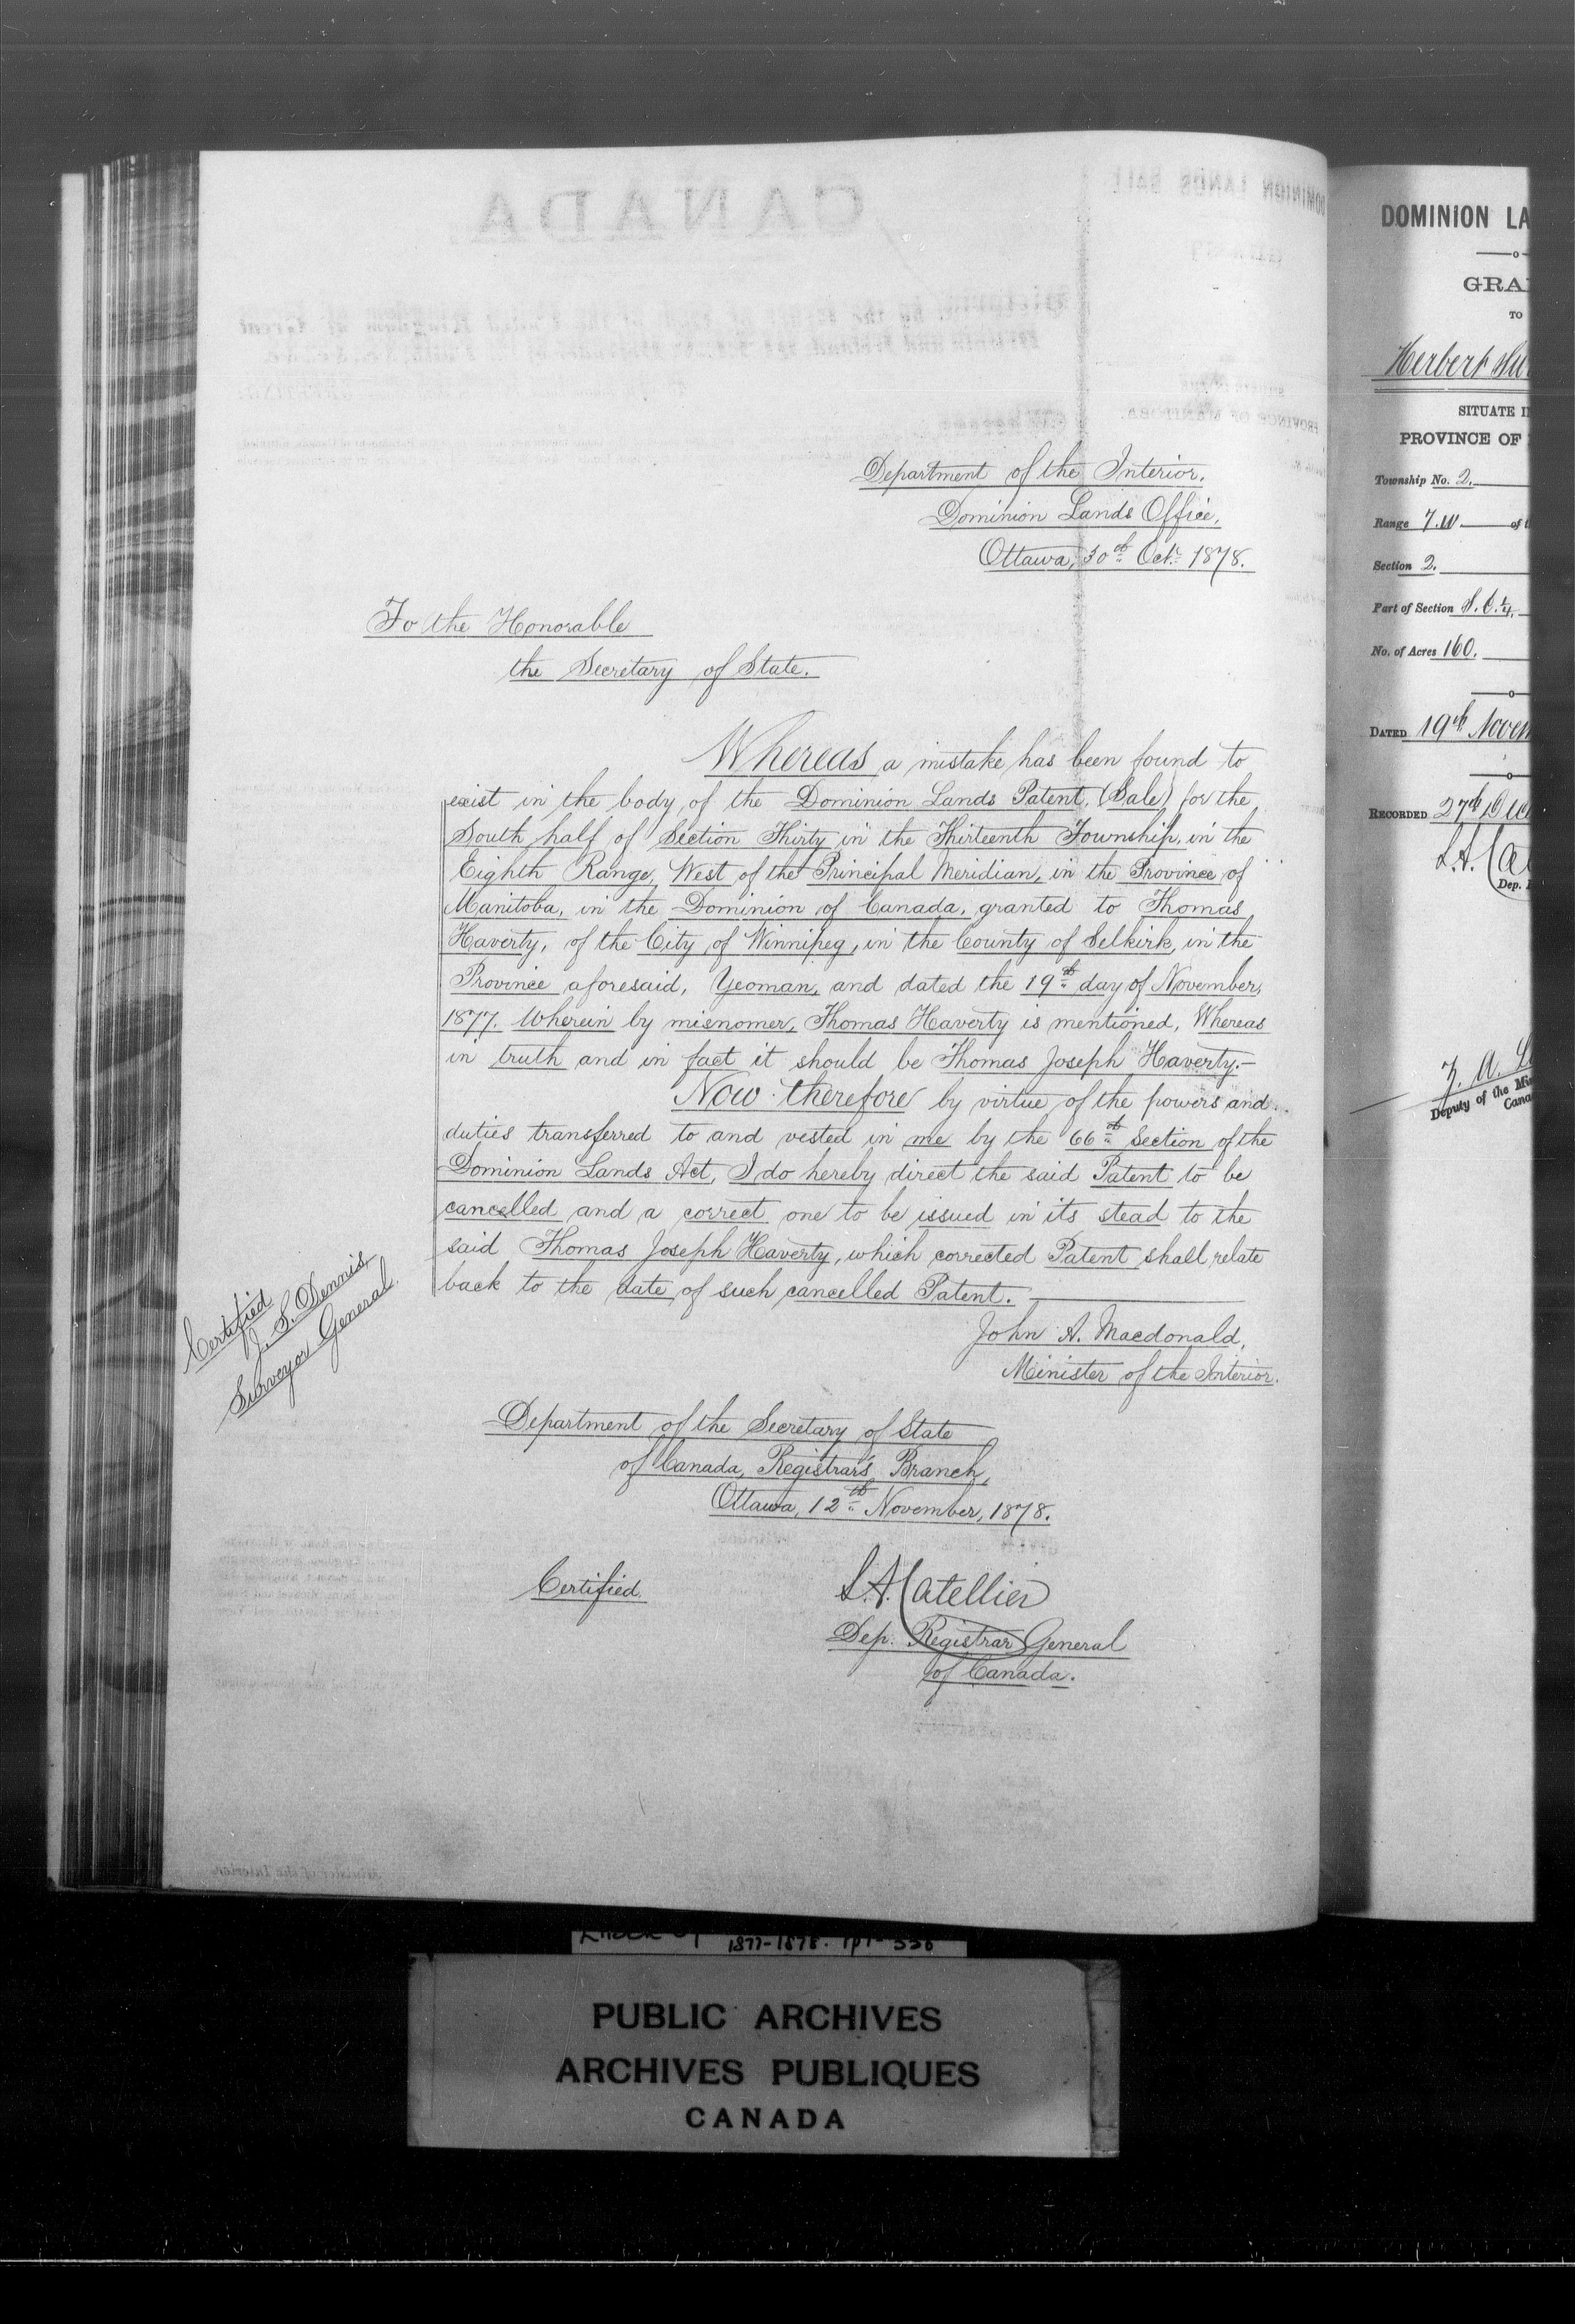 Department of the Interior.
Dominion Lands Office,
Ottawa, 30th Oct. 1878.
To the Honorable
the Secretary of State.
Whereas a mistake has been found to
exist in the body of the Dominion Lands Patent, (Sale) for the
South half of Section Thirty in the Thirteenth Township, in the
Eighth Range, West of the Principal Meridian, in the Province of
Manitoba, in the Dominion of Canada, granted to Thomas
Haverty, of the City of Winnipeg, in the County of Selkirk, in the
Province aforesaid, Yeoman, and dated the 19th day of November,
1877. Wherein by misnomer, Thomas Haverty is mentioned, Whereas
in truth and in fact it should be Thomas Joseph Haverty.—
Now therefore by virtue of the powers and
duties transferred to and vested in me by the 66th Section of the
Dominion Lands Act, I do hereby direct the said Patent to be
cancelled and a correct one to be issued in its stead to the
said Thomas Joseph Haverty, which corrected Patent shall relate
back to the date of such cancelled Patent.
John A. Macdonald,
Minister of the Interior.
Certified
J. S. Dennis,
Surveyor General.
Department of the Secretary of State
of Canada, Registrar's Branch,
Ottawa, 12th November, 1878.
Certified.
L.A. Catellier
Dep. Registrar General
of Canada.
DOMINION LA
GRA
TO
Herbert
SITUATE I
PROVINCE OF
Township No. 2.
Range 7.W of t
Section 2.
Part of Section S.E. 1/4.
No. of Acres 160.
DATED 19th Novem
RECORDED 27th Dec
L.A. Ca
Dep.
Deputy of the Mi
Cana
CANADA
1877-1878.
PUBLIC ARCHIVES
ARCHIVES PUBLIQUES
CANADA